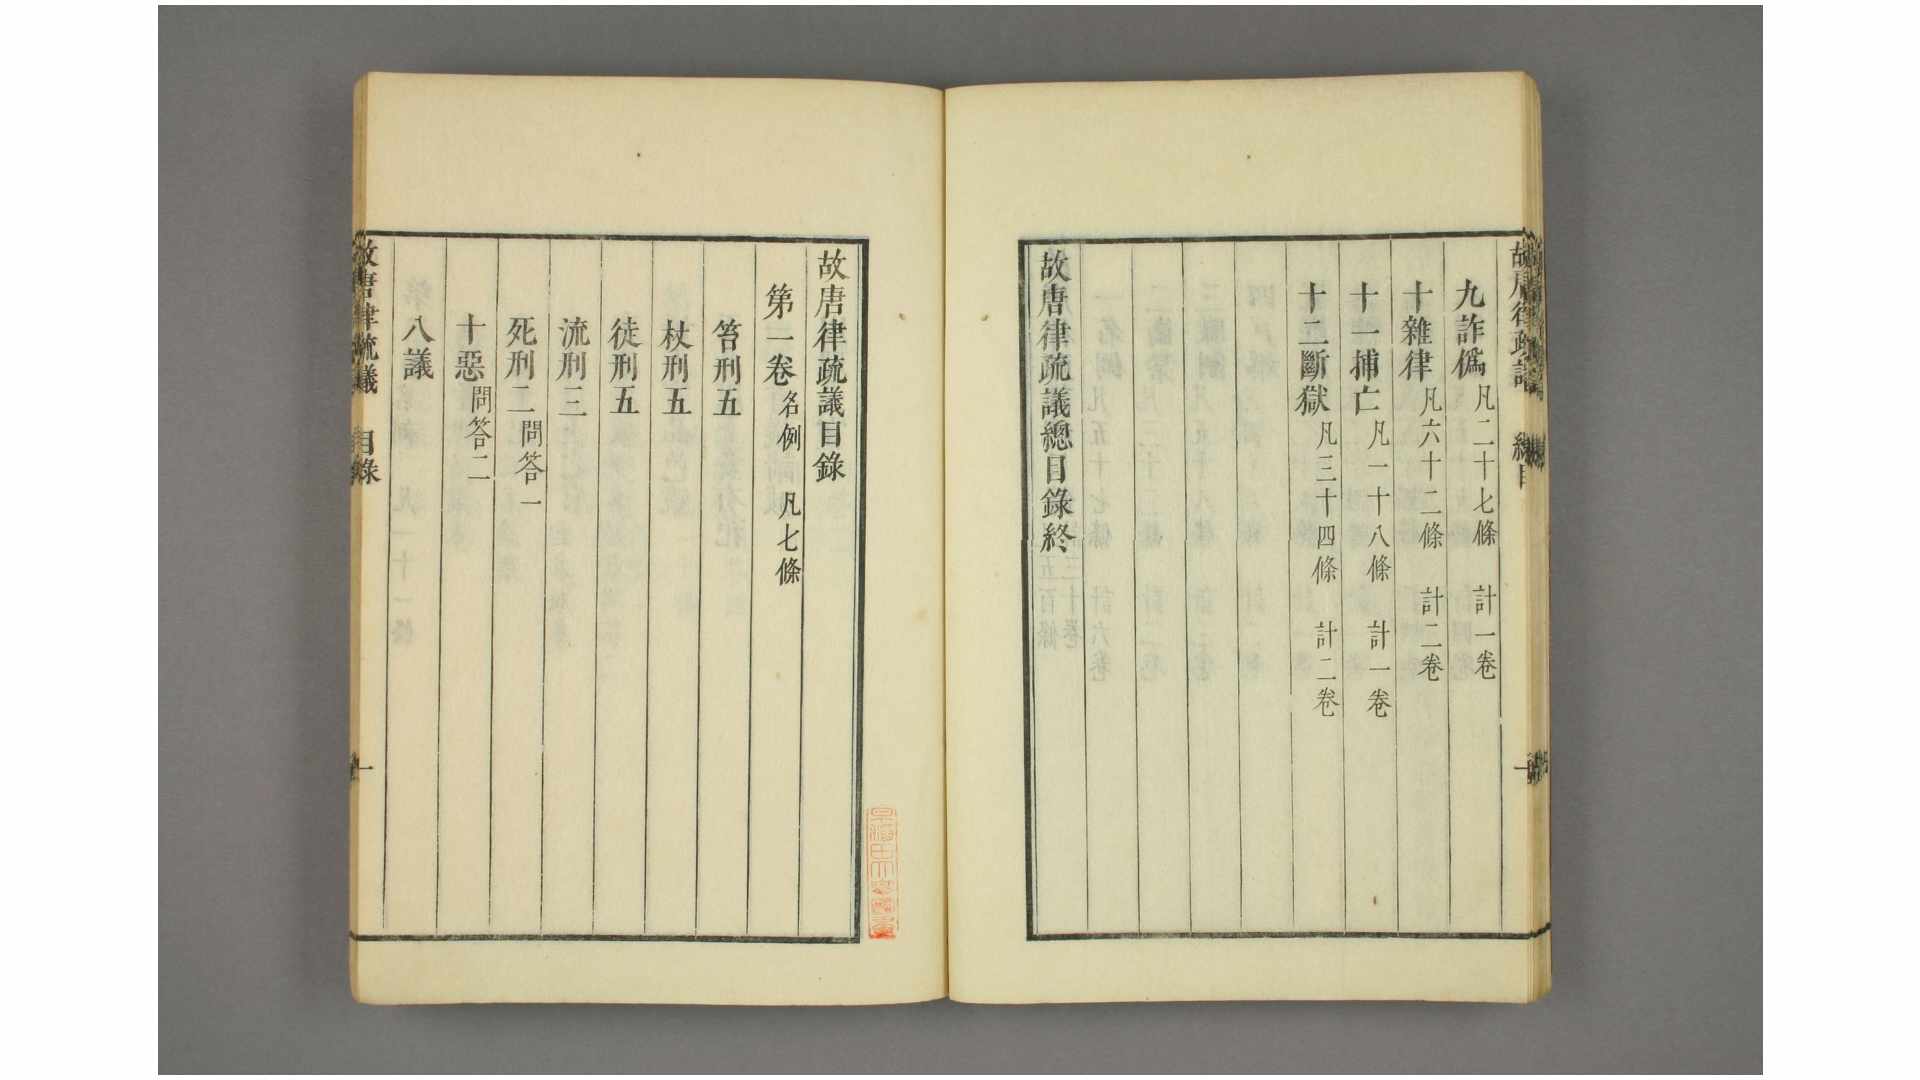 故唐律疏議 總目 一
九詐僞 凡二十七條 計一卷
十雜律 凡六十二條 計二卷
十一捕亡 凡一十八條 計一卷
十二斷獄 凡三十四條 計二卷
故唐律疏議總目錄終
故唐律疏議目錄
第一卷 名例 凡七條
笞刑五
杖刑五
徒刑五
流刑三
死刑二 問答一
十惡 問答二
八議
故唐律疏議 目錄 一